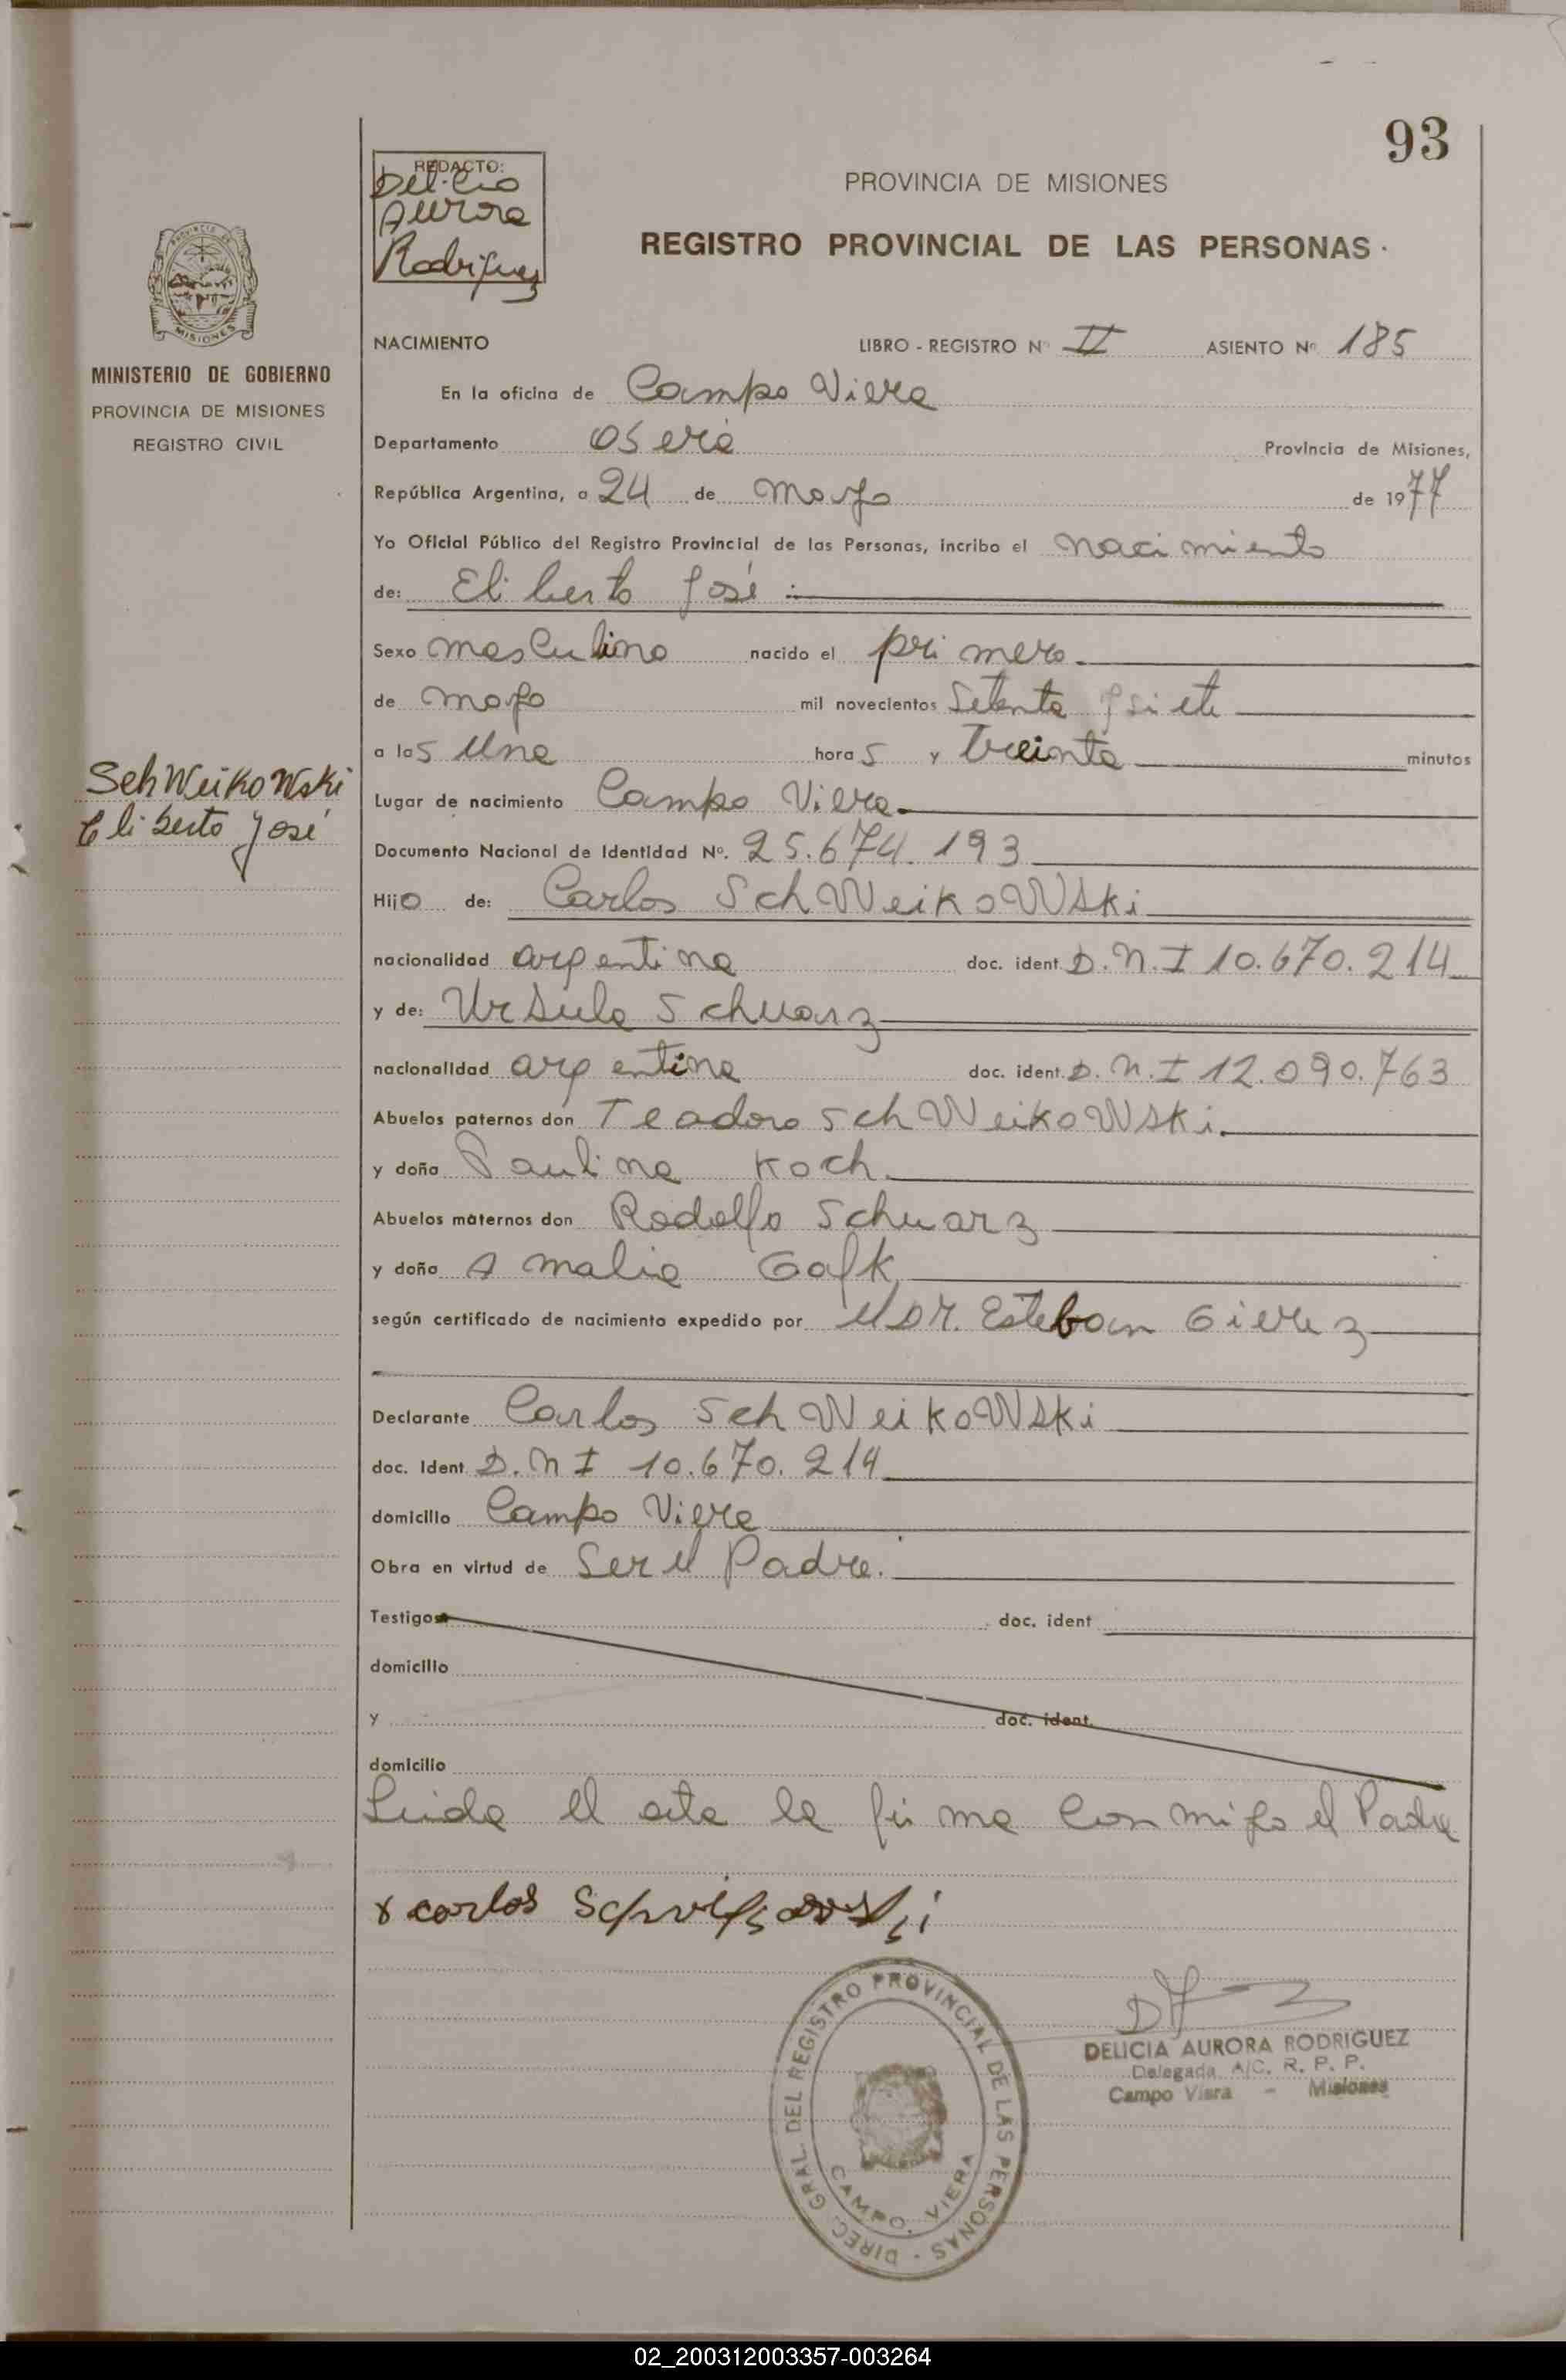 93
REDACTO:
Delicia
Aurora
Rodriguez
PROVINCIA DE MISIONES
REGISTRO PROVINCIAL DE LAS PERSONAS
PROVINCIA DE
MISIONES
MINISTERIO DE GOBIERNO
PROVINCIA DE MISIONES
REGISTRO CIVIL
NACIMIENTO LIBRO - REGISTRO Nº II ASIENTO Nº 185
En la oficina de Campo Viera
Departamento Oberá Provincia de Misiones,
República Argentina, a 24 de mayo de 1977
Yo Oficial Público del Registro Provincial de las Personas, incribo el nacimiento
de: Eliberto José
Sexo masculino nacido el primero
de mayo mil novecientos Setenta y siete
a las una horas y treinta minutos
SchWeikoWski
Eliberto José
Lugar de nacimiento Campo Viera
Documento Nacional de Identidad Nº. 25.674.193
Hijo de: Carlos SchWeikoWski
nacionalidad argentina doc. ident. D.N.I 10.670.214
y de: Ursula Schuarz
nacionalidad argentina doc. ident. D.N.I 12.090.763
Abuelos paternos don Teodoro SchWeikoWski
y doña Paulina Koch
Abuelos maternos don Rodolfo Schuarz
y doña Amalia Galk
según certificado de nacimiento expedido por el Dr. Esteban
Declarante Carlos SchWeikoWski
doc. Ident D.N I 10.670.214
domicilio Campo Viera
Obra en virtud de Ser el Padre.
Testigos doc. ident
domicilio
y doc. ident.
domicilio
Leida el acta la firma conmigo el Padre
x carlos
DIREC. GRAL. DEL REGISTRO PROVINCIAL DE LAS PERSONAS
CAMPO VIERA
DELICIA AURORA RODRIGUEZ
Delegada A/C. R. P. P.
Campo Viera - Misiones
02_200312003357-003264